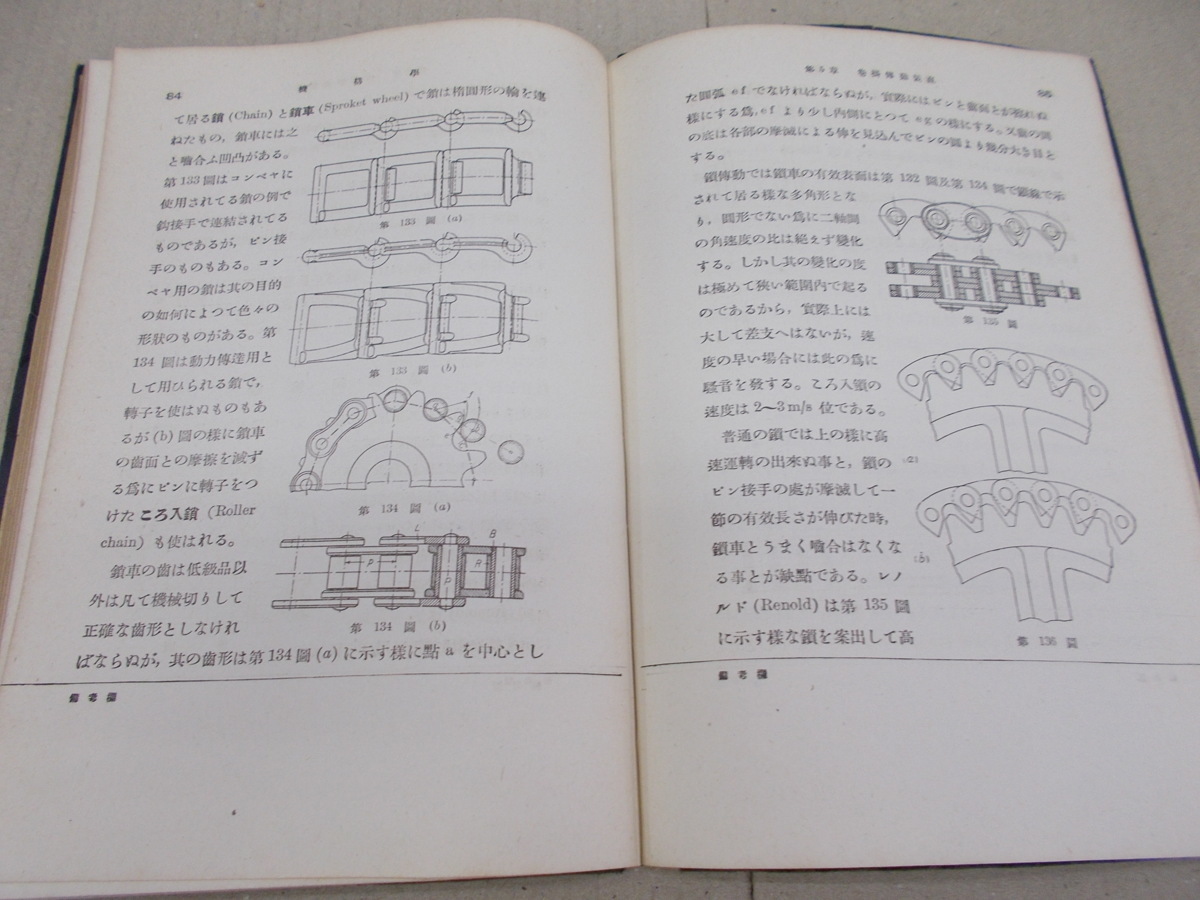 84
機構學
て居る鎖 (Chain) と鎖車 (Sproket wheel) で鎖は楕圓形の輪を連
ねたもの,鎖車には之
と嚙合ふ凹凸がある。
第133圖はコンベヤに
使用されてる鎖の例で
鉤接手で連結されてる
ものであるが,ピン接
手のものもある。コン
ベヤ用の鎖は其の目的
の如何によつて色々の
形狀のものがある。第
134 圖は動力傳達用と
して用ひられる鎖で,
轉子を使はぬものもあ
るが (b) 圖の樣に鎖車
の齒面との摩擦を減ず
る爲にピンに轉子をつ
けた ころ入鎖 (Roller
chain) も使はれる。
鎖車の齒は低級品以
外は凡て機械切りして
正確な齒形としなけれ
ばならぬが,其の齒形は第134圖 (a) に示す樣に點 a を中心とし
第 133 圖 (a)
第 133 圖 (b)
第 134 圖 (a)
L
B
P
P
R
第 134 圖 (b)
備考欄
第5章
85
た圓弧 ef でなければならぬが,實際にはピンと齒面とが
樣にする爲, ef より少し內側にとつて eg の樣にする。又齒の間
の底は各部の摩滅による伸を見込んでピンの圓より幾分大き目と
する。
鎖傳動では鎖車の有效表面は第 132 圖及第 134 圖で鎖線で示
されて居る樣な多角形とな
り,圓形でない爲に二軸間
の角速度の比は絕えず變化
する。しかし其の變化の度
は極めて狹い範圍內で起る
のであるから,實際上には
大して差支へはないが,速
度の早い場合には此の爲に
騷音を發する。ころ入鎖の
速度は 2〜3 m/s 位である。
普通の鎖では上の樣に高
速運轉の出來ぬ事と,鎖の
ピン接手の處が摩滅して一
節の有效長さが伸びた時,
鎖車とうまく嚙合はなくな
る事とが缺點である。レノ
ルド (Renold) は第 135 圖
に示す樣な鎖を案出して高
第 135 圖
(a)
(b)
第 136 圖
備考欄